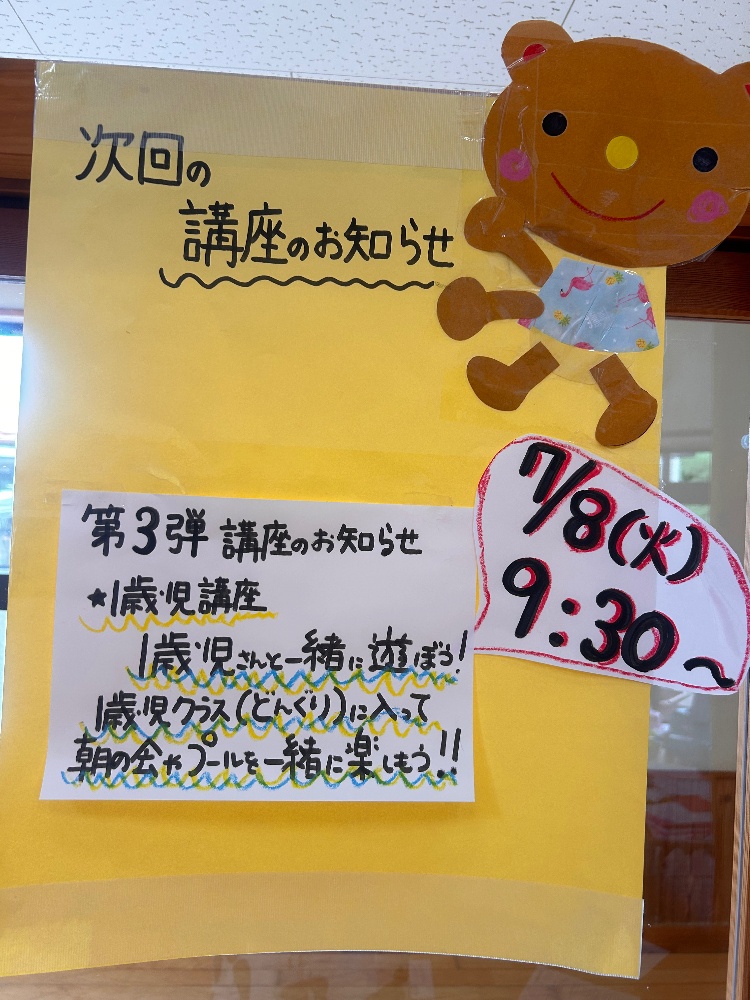 次回の
講座のお知らせ
7/8(火)
9:30~
第3弾 講座のお知らせ
★1歳児講座
1歳児さんと一緒に遊ぼう!
1歳児クラス(どんぐり)に入って
朝の会やプールを一緒に楽しもう!!